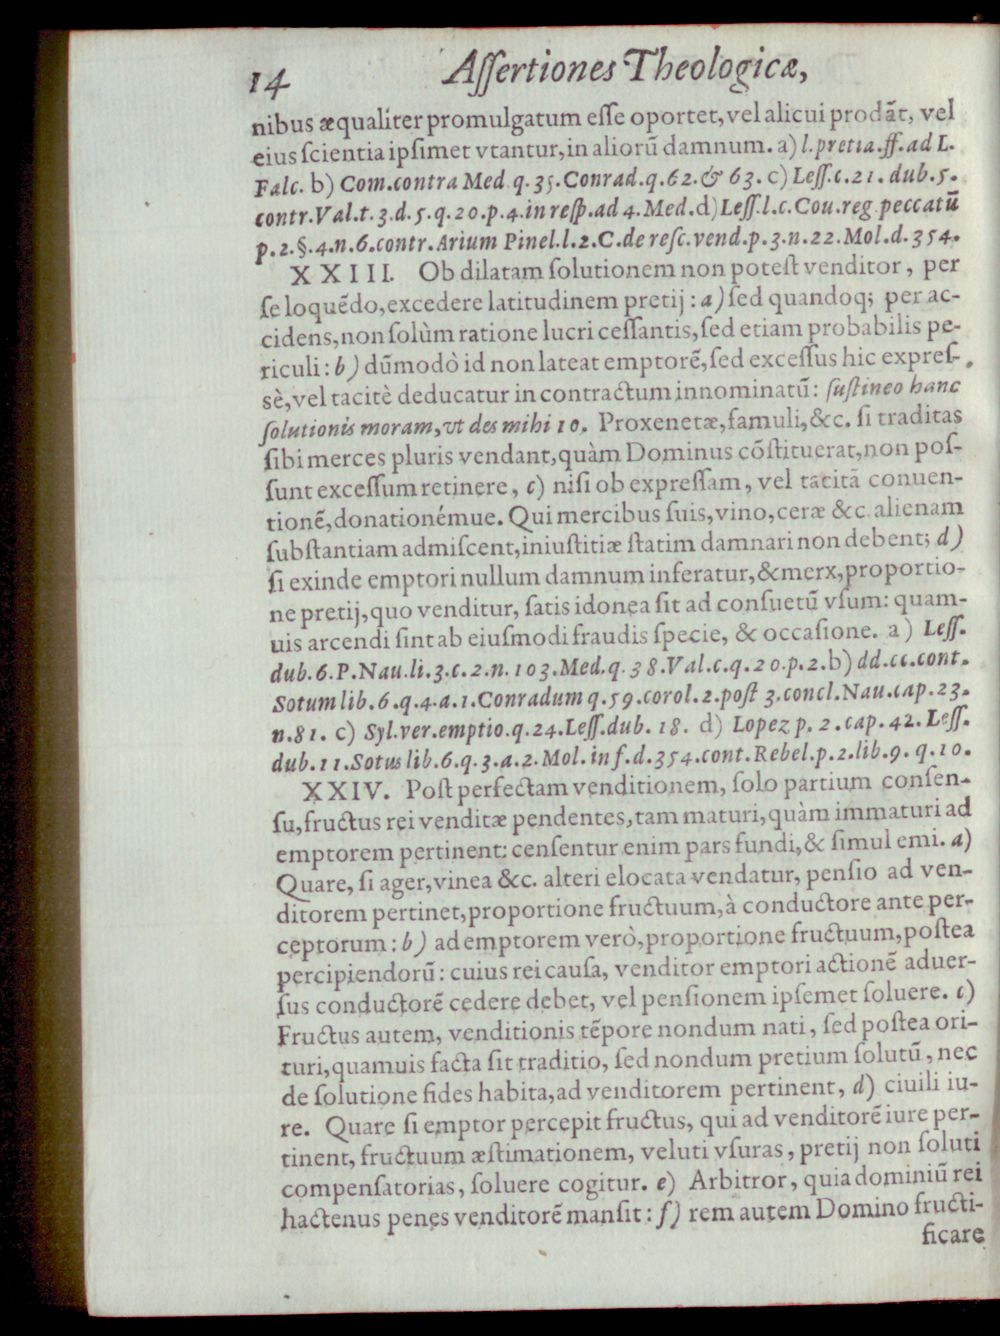 14 Aſſertiones Theologicæ,
nibus æqualiter promulgatum eſſe oportet, vel alicui prodãt, vel
eius ſcientia ipſimet vtantur, in aliorũ damnum. a) l. pretia. ff. ad L.
Falc. b) Com. contra Med q. 35. Conrad. q. 62. & 63. c) Leſſ. c. 21. dub. 5.
contr. Val. t. 3. d. 5. q. 20. p. 4. in reſp. ad 4. Med. d) Leſſ. l. c. Cou. reg peccatũ
p. 2. §. 4. n. 6. contr. Arium Pinel. l. 2. C. de reſc. vend. p. 3. n. 22. Mol. d. 354.
XXIII. Ob dilatam ſolutionem non poteſt venditor, per
ſe loquẽdo, excedere latitudinem pretij: a) ſed quandoq; per ac-
cidens, non ſolùm ratione lucri ceſſantis, ſed etiam probabilis pe-
riculi: b) dũmodò id non lateat emptorẽ, ſed exceſſus hic expreſ-
sè, vel tacitè deducatur in contractum innominatũ: ſuſtineo hanc
ſolutionis moram, vt des mihi 10. Proxenetæ, famuli, &c. ſi traditas
ſibi merces pluris vendant, quàm Dominus cõſtituerat, non poſ-
ſunt exceſſum retinere, c) niſi ob expreſſam, vel tacitã conuen-
tionẽ, donationémue. Qui mercibus ſuis, vino, ceræ &c. alienam
ſubſtantiam admiſcent, iniuſtitiæ ſtatim damnari non debent; d)
ſi exinde emptori nullum damnum inferatur, & merx, proportio-
ne pretij, quo venditur, ſatis idonea ſit ad conſuetũ vſum: quam-
uis arcendi ſint ab eiuſmodi fraudis ſpecie, & occaſione. a) Leſſ.
dub. 6. P. Nau. li. 3. c. 2. n. 103. Med. q. 38. Val. c. q. 20. p. 2. b) dd. cc. cont.
Sotum lib. 6. q. 4. a. 1. Conradum q. 59. corol. 2. poſt 3. concl. Nau. cap. 23.
n. 81. c) Syl. ver. emptio. q. 24. Leſſ. dub. 18. d) Lopez p. 2. cap. 42. Leſſ.
dub. 11. Sotus lib. 6. q. 3. a. 2. Mol. inf. d. 354. cont. Rebel. p. 2. lib. 9. q. 10.
XXIV. Poſt perfectam venditionem, ſolo partium conſen-
ſu, fructus rei venditæ pendentes, tam maturi, quàm immaturi ad
emptorem pertinent: cenſentur enim pars fundi, & ſimul emi. a)
Quare, ſi ager, vinea &c. alteri elocata vendatur, penſio ad ven-
ditorem pertinet, proportione fructuum, à conductore ante per-
ceptorum: b) ad emptorem verò, proportione fructuum, poſtea
percipiendorũ: cuius rei cauſa, venditor emptori actionẽ aduer-
ſus conductorẽ cedere debet, vel penſionem ipſemet ſoluere. c)
Fructus autem, venditionis tẽpore nondum nati, ſed poſtea ori-
turi, quamuis facta ſit traditio, ſed nondum pretium ſolutũ, nec
de ſolutione fides habita, ad venditorem pertinent, d) ciuili iu-
re. Quare ſi emptor percepit fructus, qui ad venditorẽ iure per-
tinent, fructuum æſtimationem, veluti vſuras, pretij non ſoluti
compenſatorias, ſoluere cogitur. e) Arbitror, quia dominiũ rei
hactenus penes venditorẽ manſit: f) rem autem Domino fructi-
ficare